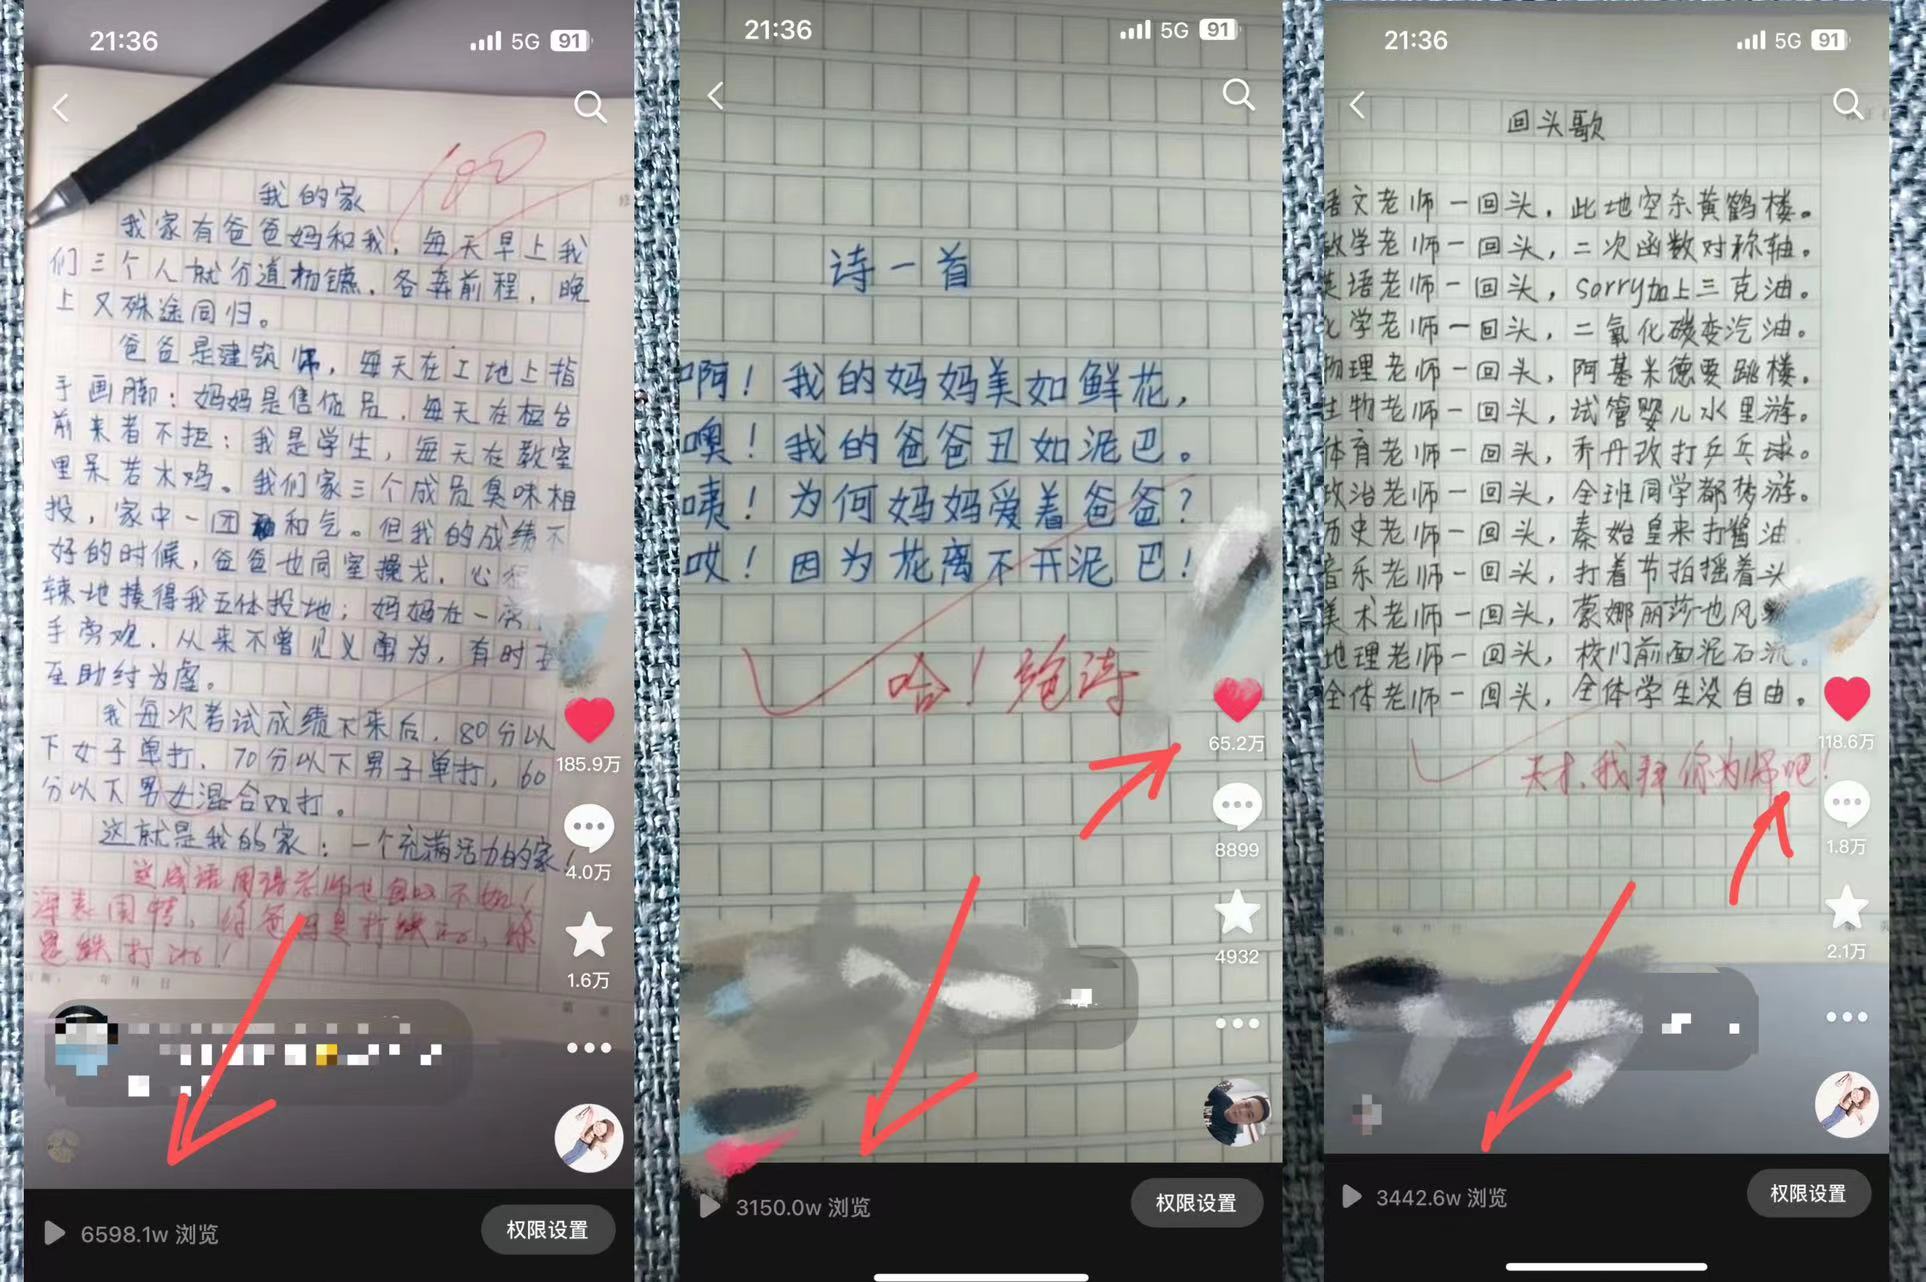 21:36
5G 91
100
我的家
我家有爸爸妈和我，每天早上我
们三个人就分道杨镳，各奔前程，晚
上又殊途同归。
爸爸是建筑师，每天在工地上指
手画脚；妈妈是售货员，每天在柜台
前来者不拒；我是学生，每天在教室
里呆若木鸡。我们家三个成员臭味相
投，家中一团和气。但我的成绩不
好的时候，爸爸也同室操戈，心
辣地揍得我五体投地；妈妈在一旁
手旁观，从来不曾见义勇为，有时
至助纣为虐。
我每次考试成绩下来后，80分以
下女子单打，70分以下男子单打，60
分以下男女混合双打。
这就是我的家：一个充满活力的家！
这成语用得老师也自叹不如！
你爸妈是打铁的，你
是铁打的！
年 月 日
185.9万
4.0万
1.6万
6598.1w 浏览
权限设置
21:36
5G 91
诗一首
啊！我的妈妈美如鲜花，
噢！我的爸爸丑如泥巴。
咦！为何妈妈爱着爸爸？
哎！因为花离不开泥巴！
哈！绝诗
65.2万
8899
4932
3150.0w 浏览
权限设置
21:36
5G 91
回头歌
语文老师一回头，此地空余黄鹤楼。
数学老师一回头，二次函数对称轴。
英语老师一回头，sorry加上三克油。
化学老师一回头，二氧化碳变汽油。
物理老师一回头，阿基米德要跳楼。
生物老师一回头，试管婴儿水里游。
体育老师一回头，乔丹改打乒乓球。
政治老师一回头，全班同学都梦游。
历史老师一回头，秦始皇来打酱油
音乐老师一回头，打着节拍摇着头
美术老师一回头，蒙娜丽莎也风
地理老师一回头，校门前面泥石流。
全体老师一回头，全体学生没自由。
天才，我拜你为师吧！
118.6万
1.8万
2.1万
3442.6w 浏览
权限设置